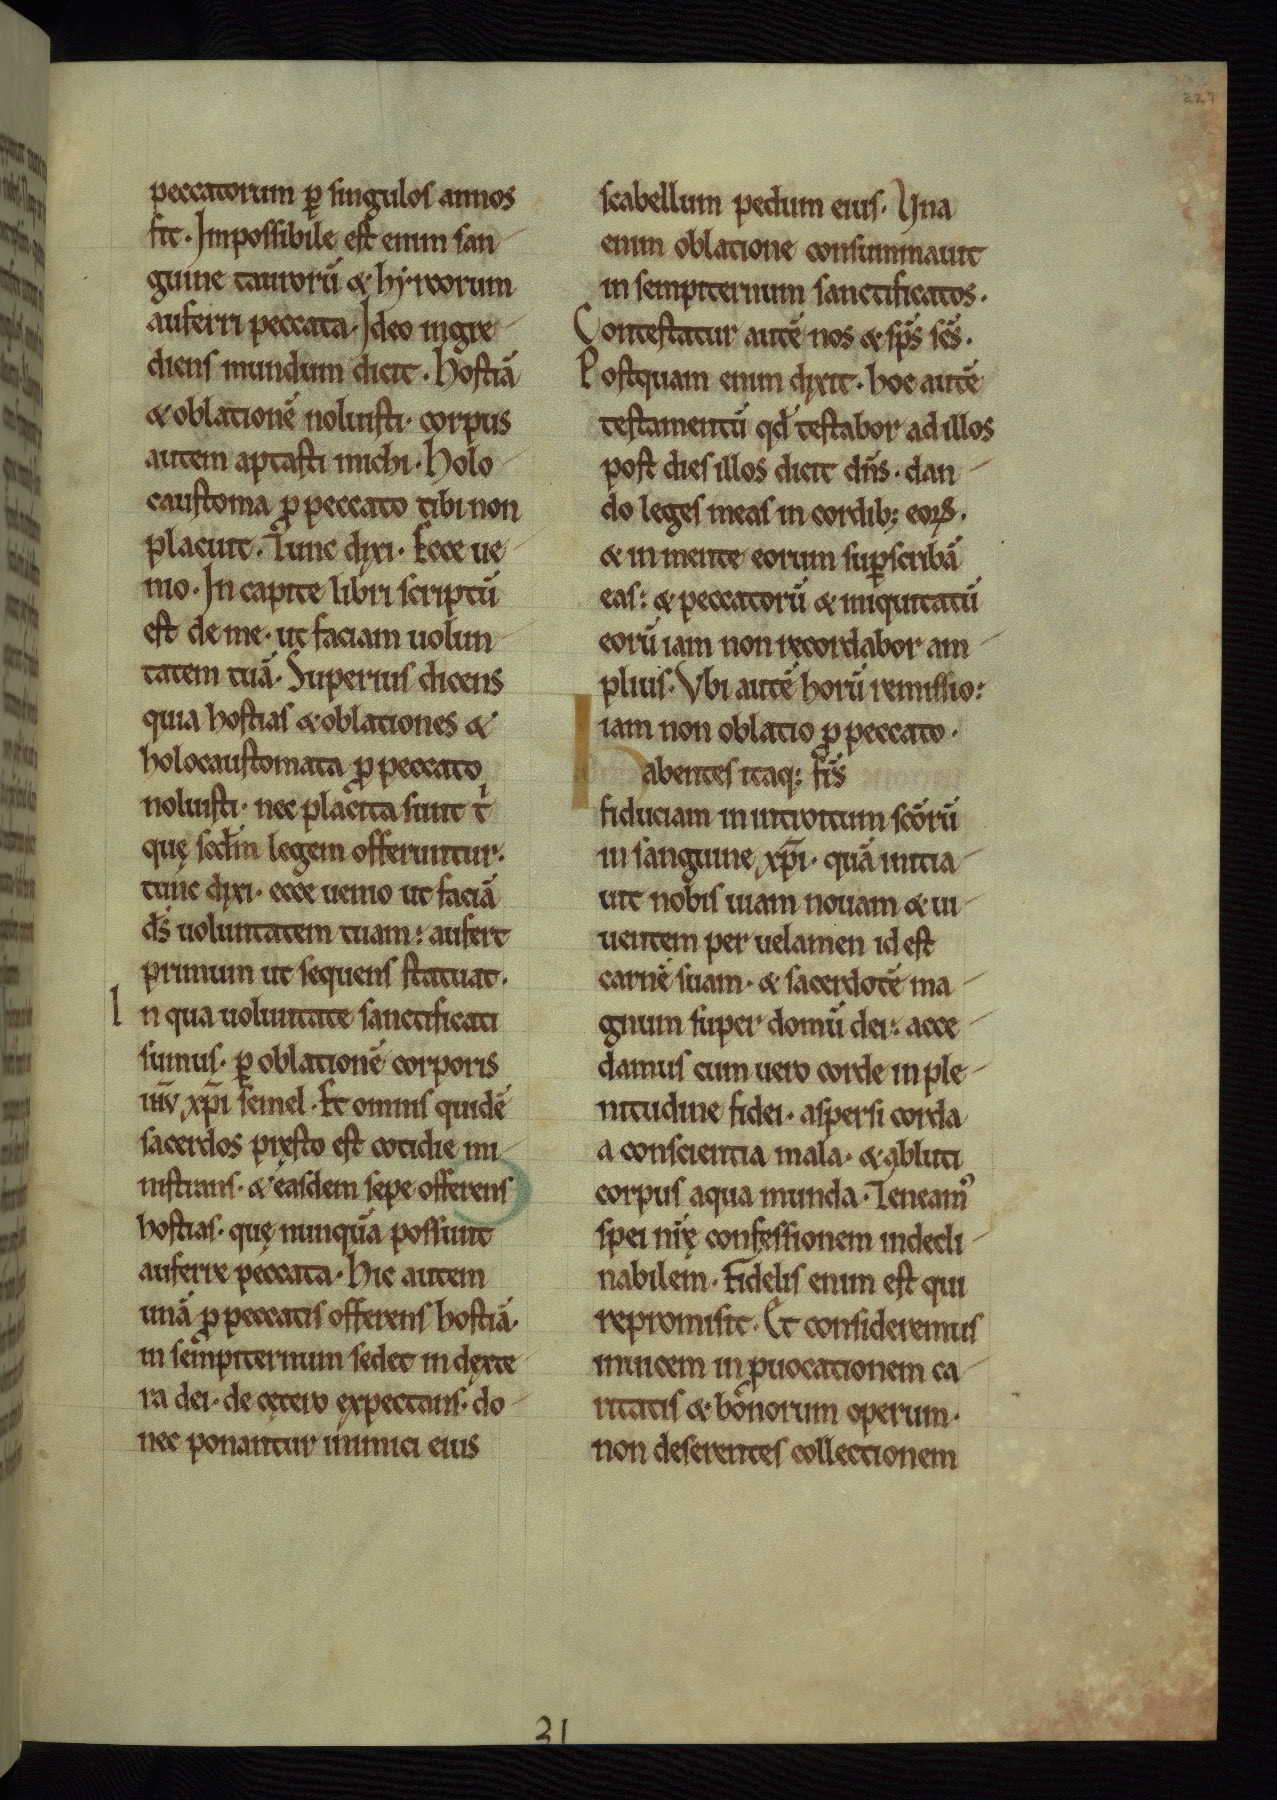 227
peccatorum ꝑ singulos annos
fit. Impossibile est enim san-
guine taurorū & hyrcorum
auferri peccata. Ideo ingre-
diens mundum dicit. Hostiā
& oblationē noluisti. corpus
autem aptasti michi. Holo-
caustoma ꝓ peccato tibi non
placuit. Tunc dixi. Ecce ue-
nio. In capite libri scriptū
est de me. ut faciam uolun-
tatem tuā. Superius dicens
quia hostias & oblationes &
holocaustomata ꝓ peccato
noluisti. nec placita sunt tͥ
quę scdm̄ legem offeruntur.
tunc dixi. ecce uenio ut faciā
ds̄ uoluntatem tuam: aufert
primum ut sequens statuat.
In qua uoluntate sanctificati
sumus. ꝑ oblationē corporis
iūv xp̄i semel. Et omnis quidē
sacerdos pręsto est cotidie mi-
nistrans. & easdem sepe offerens
hostias. quę nunquā possunt
auferre peccata. Hic autem
unā ꝓ peccatis offerens hostiā.
in sempiternum sedet in dexte-
ra dei. de cętero expectans. do-
nec ponantur inimici eius
scabellum pedum eius. Una
enim oblatione consummauit
in sempiternum sanctificatos.
Contestatur autē nos & sp̄s sc̄s.
Postquam enim dixit. hoc autē
testamentū qđ testabor ad illos
post dies illos dicit dn̄s. dan-
do leges meas in cordib; eoꝝ.
& in mente eorum suꝑscribā
eas: & peccatorū & iniquitatū
eorū iam non recordabor am-
plius. Vbi autē horū remissio:
iam non oblatio ꝓ peccato.
habentes itaq; fr̄s
fiduciam in introitum scōrū
in sanguine xp̄i. quā initia-
uit nobis uiam nouam & ui-
uentem per uelamen id est
carnē suam. & sacerdotē ma-
gnum super domū dei: acce-
damus cum uero corde in ple-
nitudine fidei. aspersi corda
a conscientia mala. & abluti
corpus aqua munda. Teneamꝰ
spei nr̄ę confessionem indecli-
nabilem. Fidelis enim est qui
repromisit. Et consideremus
inuicem in ꝓuocationem ca-
ritatis & bonorum operum.
non deserentes collectionem
31